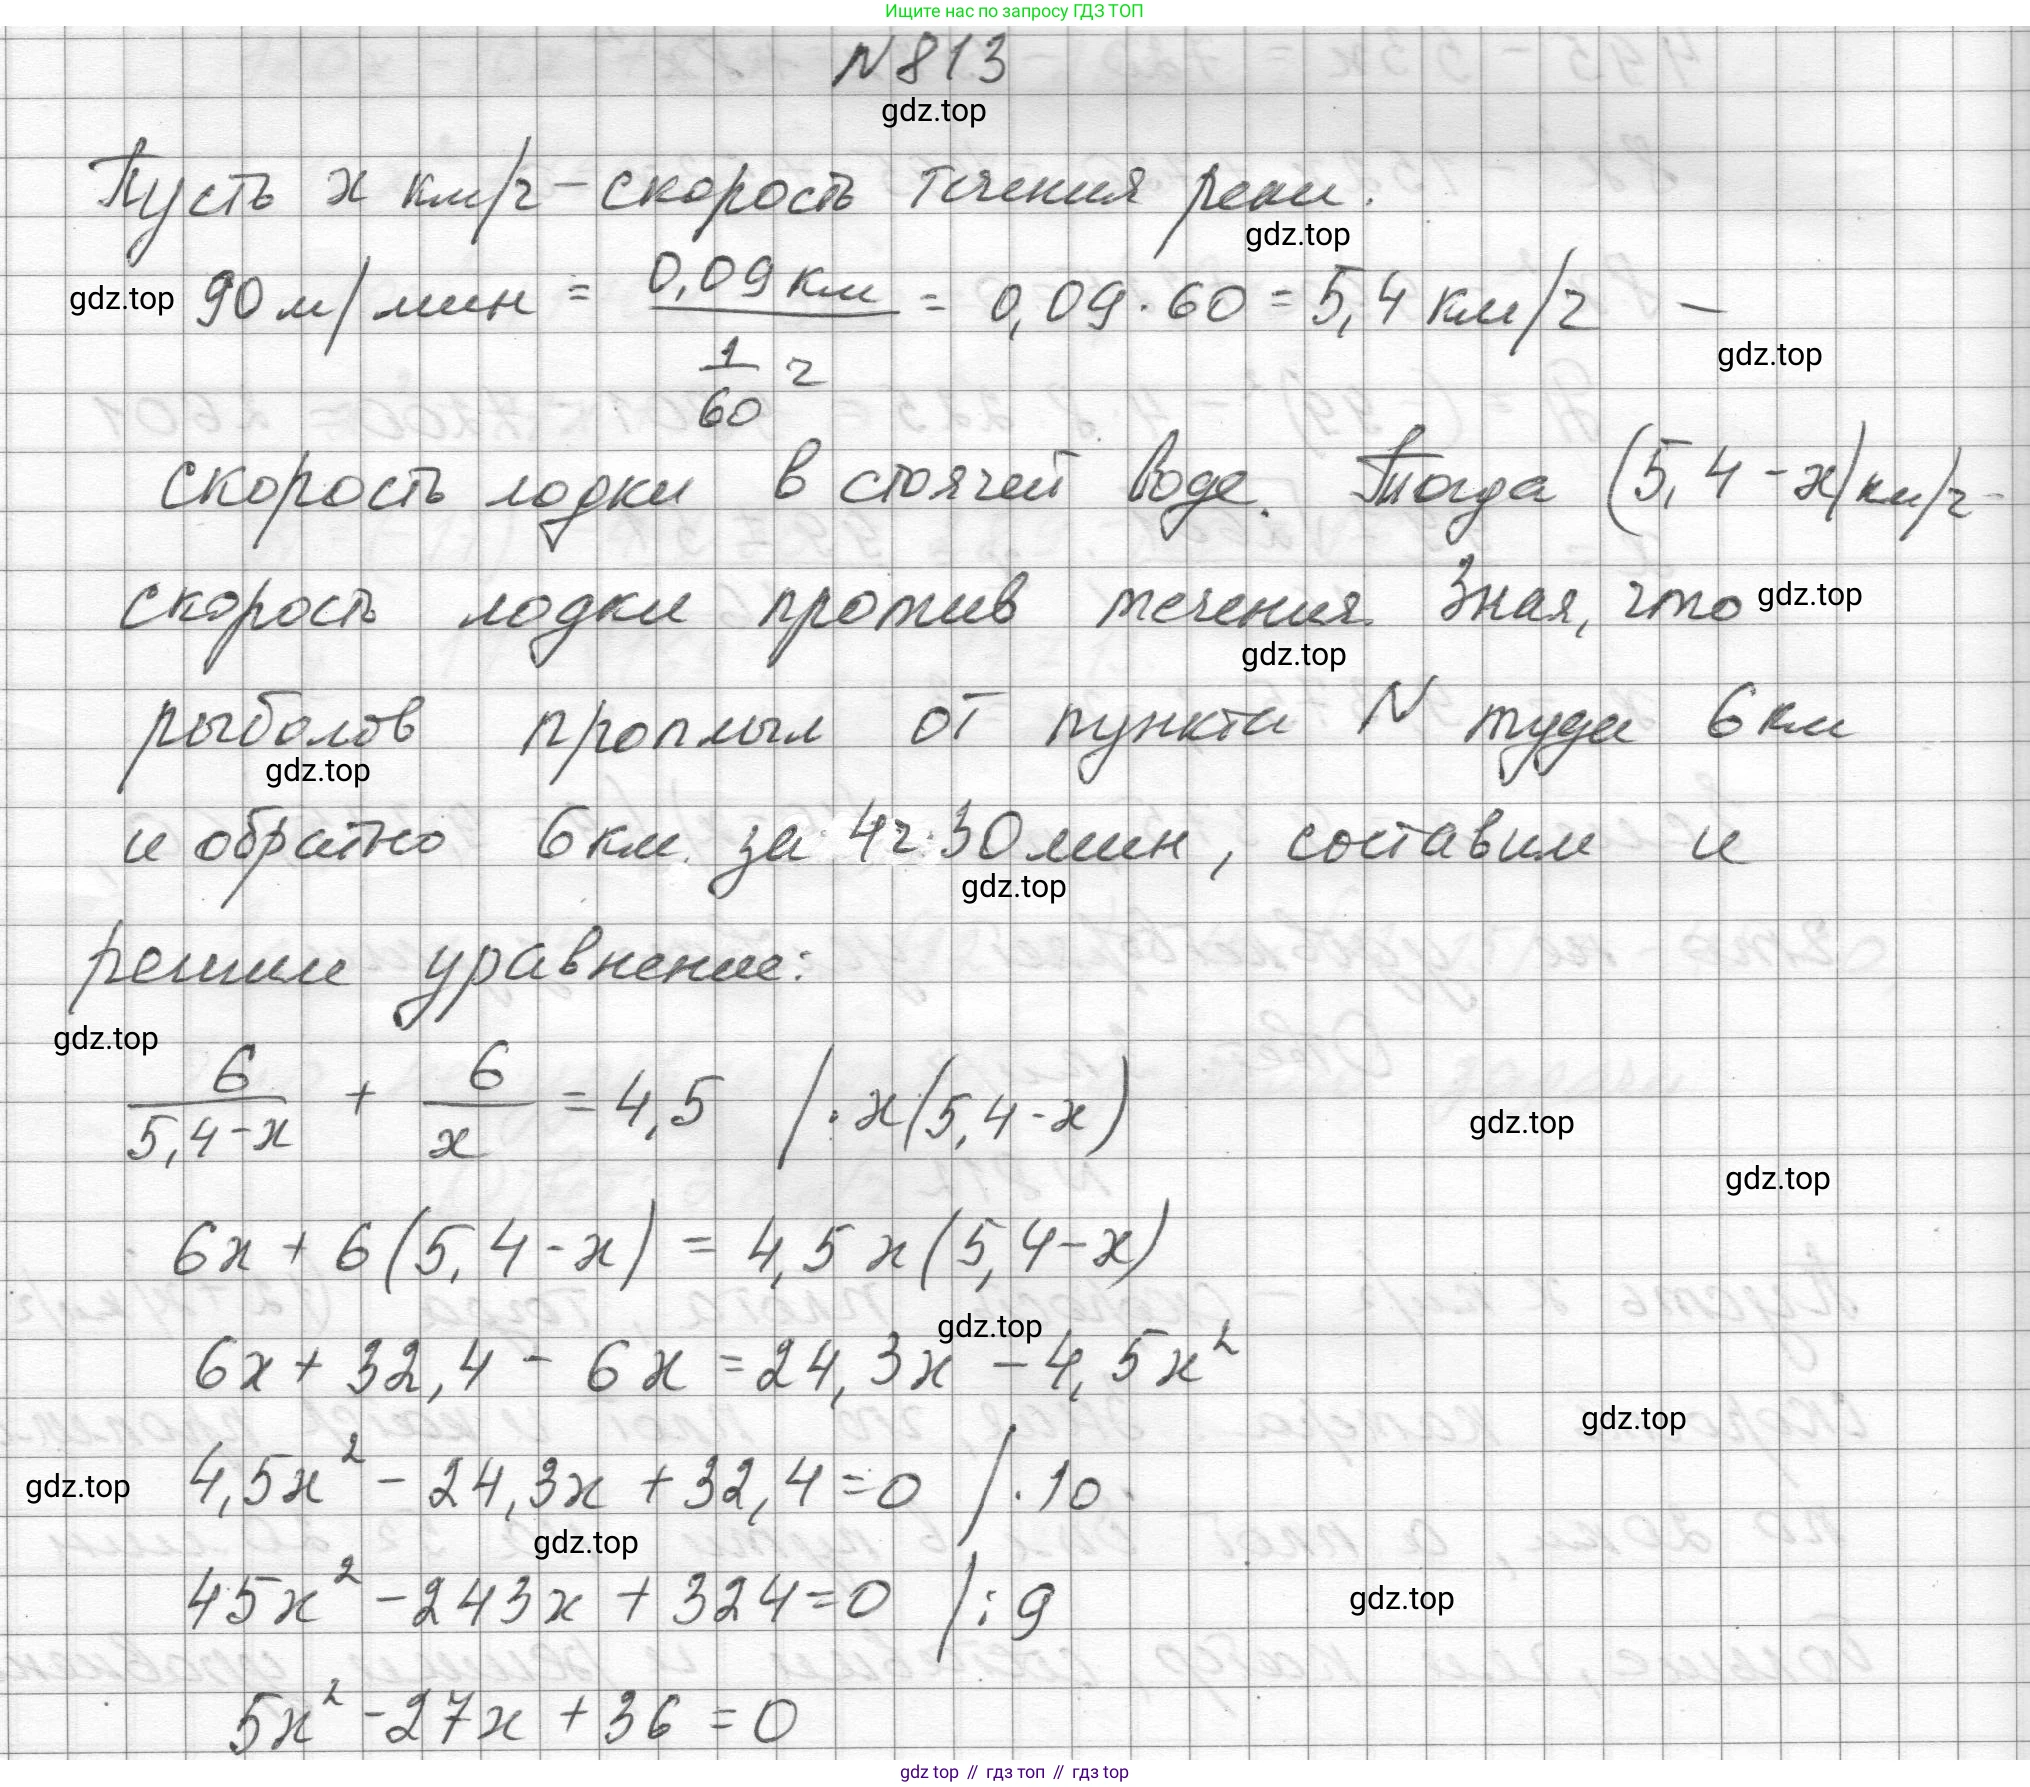 Ищите нас по запросу ГДЗ ТОП
N 813
gdz.top
Пусть x км/ч – скорость течения реки.
gdz.top
gdz.top 90 м/мин = 0,09 км / 1/60 ч = 0,09 · 60 = 5,4 км/ч –
gdz.top
скорость лодки в стоячей воде. Тогда (5,4 - x) км/ч -
скорость лодки против течения. Зная, что gdz.top
gdz.top
рыболов проплыл от пункта N туда 6 км
gdz.top
и обратно 6 км. за 4ч 30 мин, составим и
gdz.top
решим уравнение:
gdz.top
6/(5,4-x) + 6/x = 4,5 | · x(5,4-x)
gdz.top
gdz.top
6x + 6(5,4-x) = 4,5x(5,4-x)
gdz.top
6x + 32,4 - 6x = 24,3x - 4,5x²
gdz.top
gdz.top 4,5x² - 24,3x + 32,4 = 0 | · 10
gdz.top
45x² - 243x + 324 = 0 | : 9
gdz.top
5x² - 27x + 36 = 0
gdz top // гдз топ // гдз top